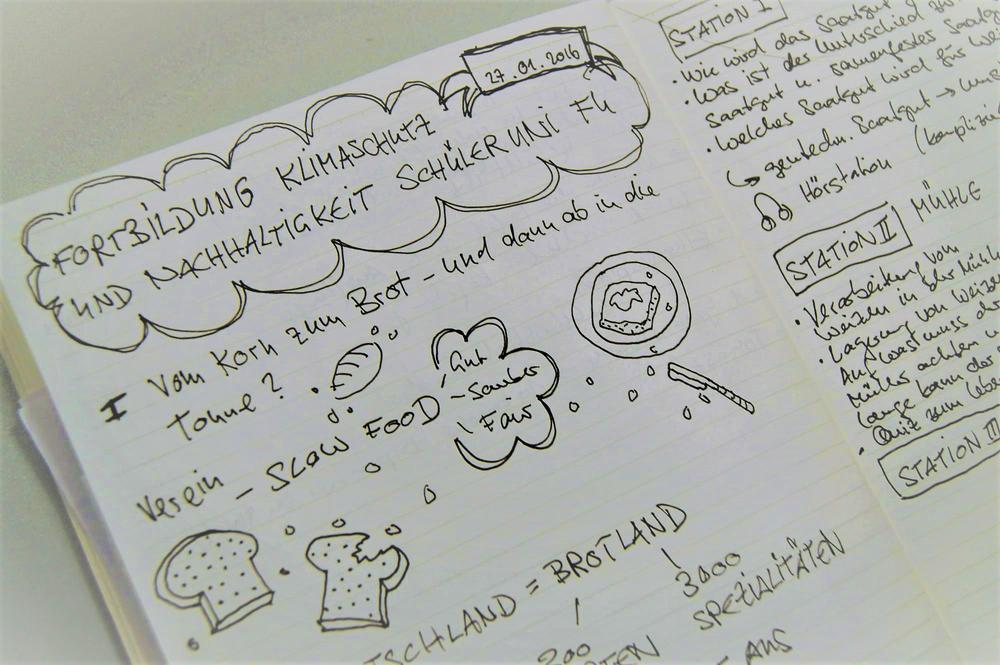 27.01.2016
FORTBILDUNG KLIMASCHUTZ
UND NACHHALTIGKEIT SCHÜLERUNI FU
I Vom Korn zum Brot - und dann ab in die
Tonne?
Verein - SLOW FOOD
Gut
- Sauber
Fair
TSCHLAND = BROTLAND
3000
SPEZIALITÄTEN
200
TEN
AUS
STATION I
• Wie wird das Saatgut
• Was ist der Unterschied zw
Saatgut u. samenfestes Saatgu
• welches Saatgut wird für Wei
gentechn. Saatgut →
Hörstation (kompliz
STATION II MÜHLE
• Verarbeitung vom
Weizen in der Mühl
• Lagerung von Weize
Auf was muss der
Müller achten
lange kann das
• Quiz zum Lebe
STATION III